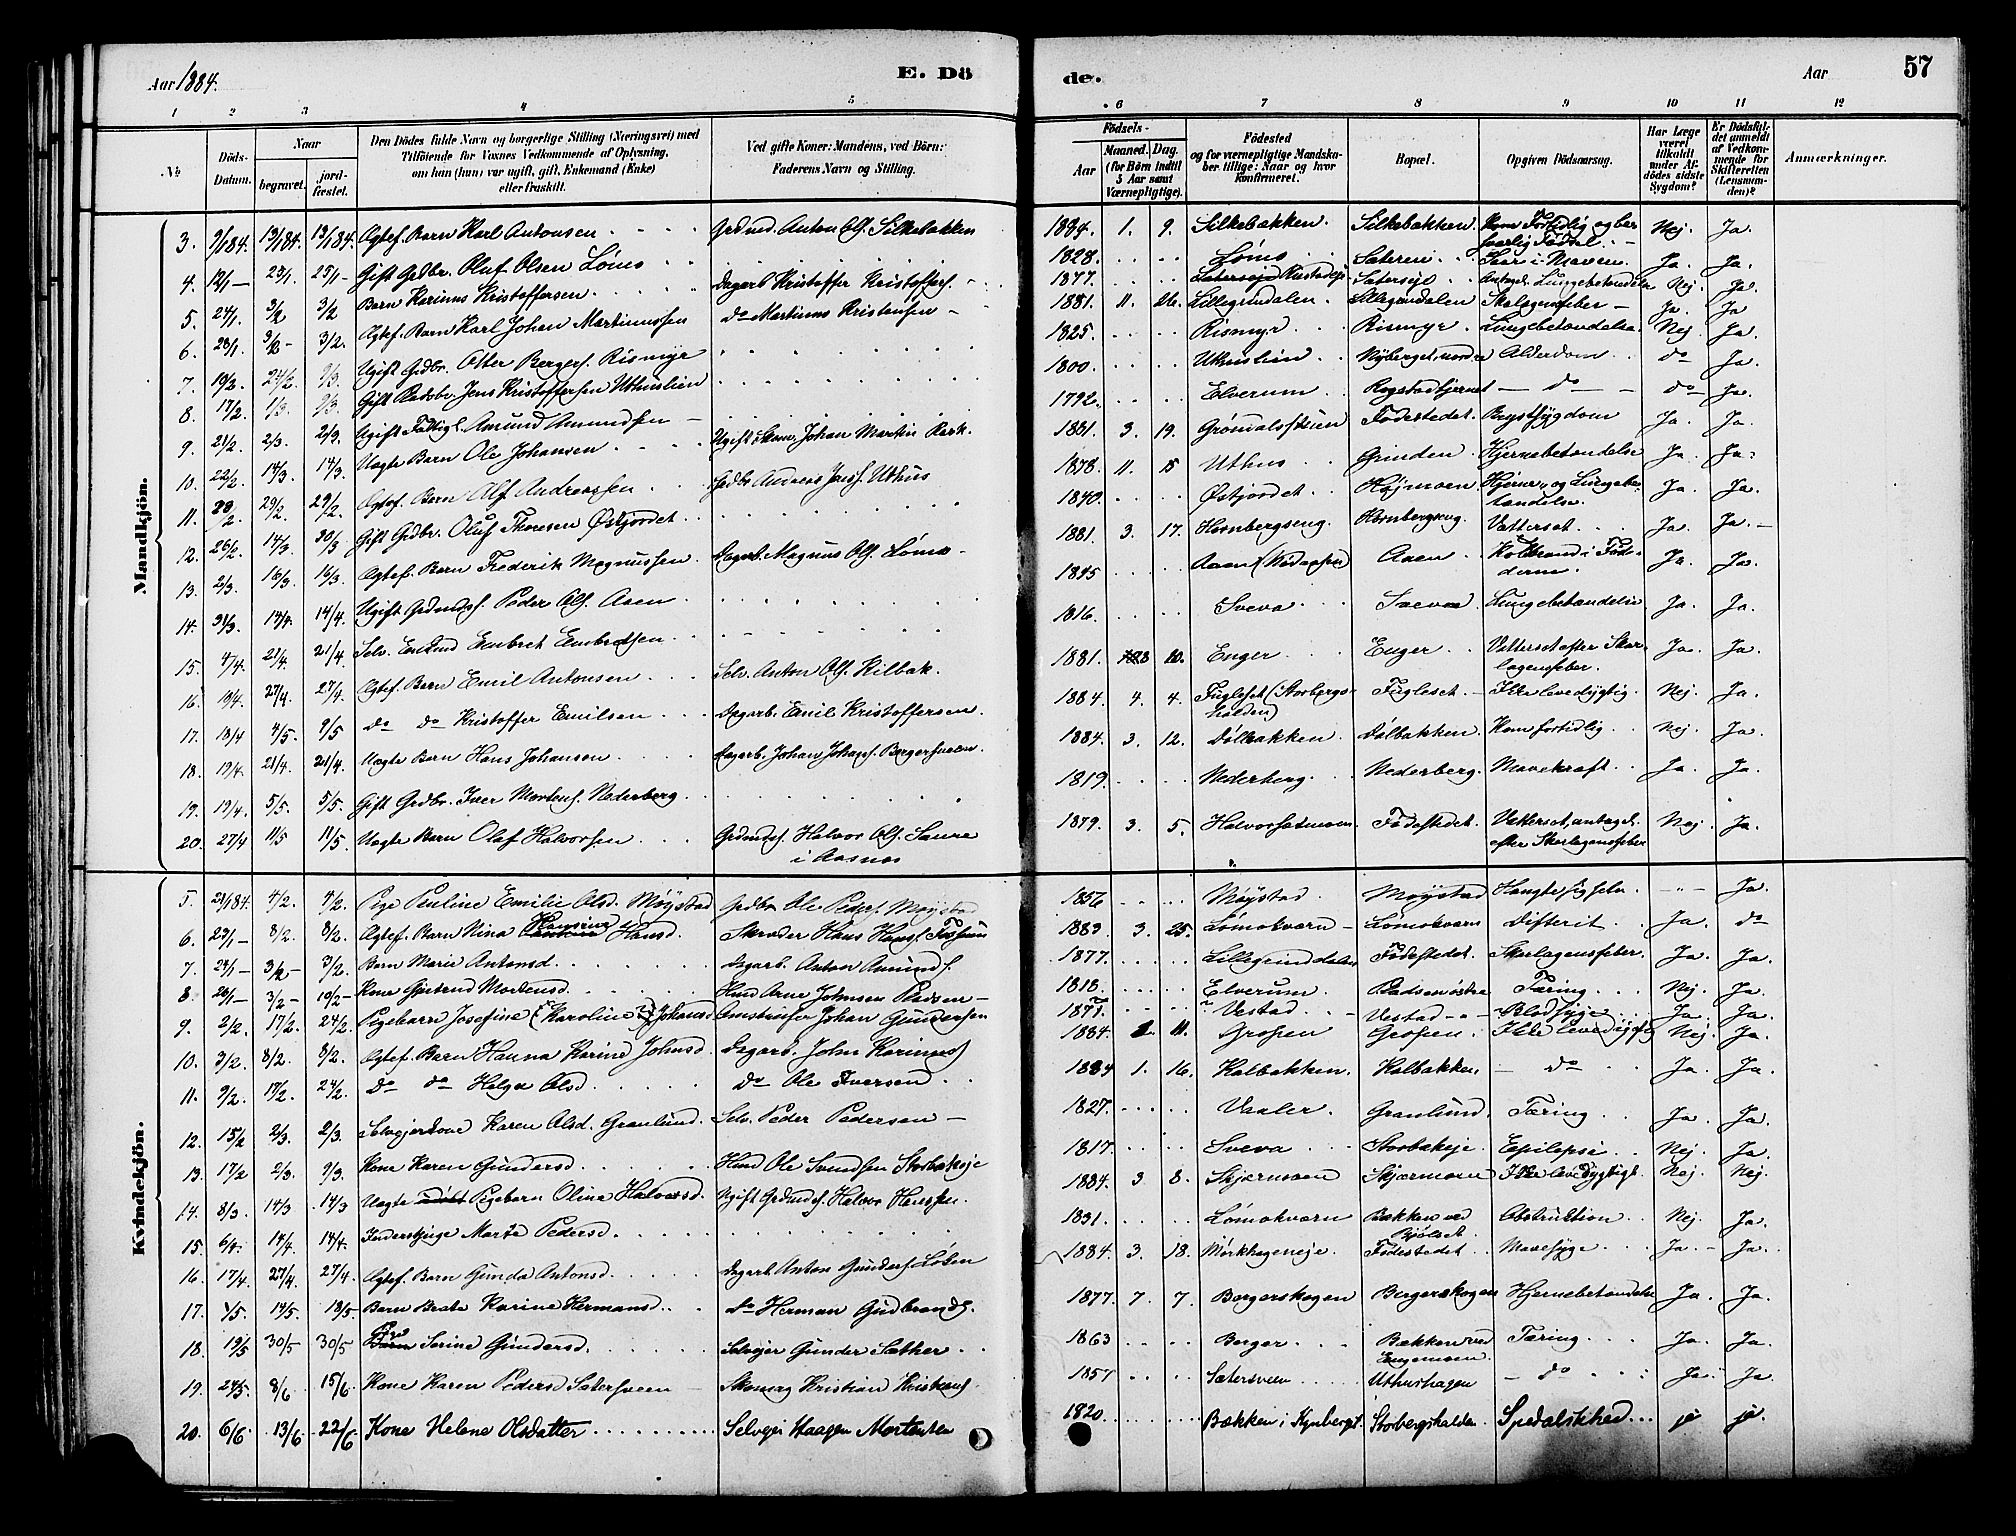 Aar 1884.
E. Dö
de.
Aar
57
1 2 3 4 5 6 7 8 9 10 11 12
No
Döds-Datum.
Naar
begravet.
jord-fæstet.
Den Dödes fulde Navn og borgerlige Stilling (Næringsvei) med
Tilföiende for Voxnes Vedkommende af Oplysning,
om han (hun) var ugift, gift, Enkemand (Enke)
eller fraskilt.
Ved gifte Koner: Mandens, ved Börn:
Faderens Navn og Stilling.
Födsels-
Aar
Maaned. Dag.
(for Börn indtil
5 Aar samt
Værnepligtige).
Födested
og for værnepligtige Mandska-
ber tillige: Naar og hvor
konfirmeret.
Bopæl.
Opgiven Dödsaarsag.
Har Læge
været
tilkaldt
under Af-
dödes sidste
Sygdom?
Er Dödsfal-
det anmeldt
af Vedkom-
mende for
Skifteretten
(Lensman-
den)?
Anmærkninger.
Mandkjön.
3. 9/1 84. 19/1 84. 19/1 84. Ægtef. Barn Karl Antonsen Grdmd. Anton Ols. Silkebakken 1884. 1. 9. Silkebakken. Silkebakken. Kom Fortidlig og besværlig Fødsel. Nej. Ja.
4. 12/1 25/1 25/1 Gift Grdbr. Oluf Olsen Lømo 1828. Lømo Sæteren Saar i Maven. Ja. Ja.
5. 24/1 3/2 3/2 Barn Karinus Kristoffersen Dagarb Kristoffer Kristoffers. 1877. Sæterseje Antagel. Lungebetændelse Nej. Ja.
6. 28/1 3/2 3/2. Ægtef. Barn Karl Johan Martinussen do Martinus Kristensen 1881. 11. 26. Lillegrindalen. Lillegrindalen Skarlagensfeber Ja. Ja
7. 19/2 24/2 9/3. Ugift Grdbr. Otter Bergers. Rismyr 1825. Rismyr Rismyr Lungebetændelse Nej. Ja.
8. 17/2 1/3 9/3. Gift Pladsbr. Jens Kristoffersen Uthuslien 1800. Uthuslien Nyberget nordre Alderdom do Ja.
9. 21/2 2/3. 2/3 Ugift Fattigl. Amund Amundsen 1792. Elverum Rogstadtjernet do do Ja.
10. 22/2 14/3 14/3. Uægte Barn Ole Johansen Ugift Skom. Johan Martin 1881. 3. 19. Fødestedet. Brystsygdom Ja. Ja.
11. 28/2 29/2. 29/2. Ægtef. Barn Alf Andreassen Grdbr Andreas Jens. Uthus 1878. 11. 15 Uthus Grinden Hjernebetændelse Ja. Ja.
12. 26/2 14/3 30/3 Gift Grdbr. Oluf Thoresen Østjordet 1840. Østjordet Højmoen Hjerne- og Lungebetændelse. Ja. Ja.
13. 2/3 16/3 16/3. Ægtef. Barn Frederik Magnussen Dagarb. Magnus Ols. Lømo 1881. 3. 17. Hornbergseng. Hornbergseng. Vattersot Ja. Ja.
14. 31/3 14/4. 14/4. Ugift Grdmds. Peder Ols. Aaen 1845 Aaen Aaen Koldbrand i Fødderne. Ja. Ja.
15. 4/4. 21/4. 21/4. Selv. Enkmd Embret Embretsen 1816. Sveva Sveva Lungebetændelse Ja. Ja.
16. 19/4. 27/4 27/4. Ægtef. Barn Emil Antonsen Selv. Anton Ols. Kilbak. 1881. 10. Enger Enger Vattersot efter Skarlagensfeber. Ja. Ja.
17. 18/4 4/5. 4/5 do do Kristoffer Emilsen Dagarb. Emil Kristoffersen 1884 4. 4. Fugleset (Storbergshalden) Fugleset Ikke levedygtig Nej. Ja.
18. 19/4. 21/4. 21/4. Uægte Barn Hans Johansen Dagarb. Johan Johans. Bergersveen 1884. 3. 12. Dølbakken. Dølbakken Kom fortidlig Nej Ja.
19. 19/4. 5/5. 5/5. Gift Grdbr. Iver Mortens. Nederberg 1819. Nederberg Nederberg. Mavekræft Ja. Ja.
20. 27/4 11/5 11/5. Uægte Barn Olaf Halvorsen Grdmds. Halvor Ols. Saure i Aasnes 1879. 3. 5. Halvorsætmoen Fødestedet. Vattersot, antagel. efter Skarlagensfeber Nej. Ja.
Kvindekjön.
5. 21/1 84. 4/2. 4/2. Pige Pauline Emilie Olsd. Møystad Grdbr Ole Peders. Møystad 1856 Møystad Møystad Hængte sig selv Ja.
6. 23/1 8/2. 8/2. Ægtef. Barn Nina Hansine Hansd. Skræder Hans Hans. Fossum 1883 3. 25. Lømokværn Lømokværn Difterit Ja. do
7. 24/1 3/2 3/2. Barn Marie Antonsd. Dagarb. Anton Amunds. 1877. Lillegrinddalen Fødestedet. Skarlagensfeber Ja. Ja.
8. 28/1 3/2 19/2 Kone Gjertrud Mortensd. Husmd Arne Johnsen Pladsen 1818. Elverum. Pladsen østre Tæring Nej. Ja.
9. 2/2. 17/2. 24/2. Pigebarn Josefine (Karoline?) Johansd Johan Gundersen 1871 Vestad Vestad Blodsyge Ja. Ja.
10. 3/2. 8/2. 8/2. Ægtef. Barn Hanna Karine Johnsd. Dagarb. John Karinus) 1884. 11. Grosen Grosen. Ikke levedygtig Nej. Ja.
11. 9/2. 17/2. 24/2. do do Helga Olsd. do Ole Iversen 1884 1. 16. Kalbakken. Kalbakken do Ja. Ja.
12. 15/2 2/3. 2/3. Selvejerkone Karen Olsd. Granlund. Selv. Peder Pedersen 1827. Vaaler. Granlund. Tæring Ja. Ja.
13. 17/2 2/3. 9/3. Kone Karen Gundersd. Husmd Ole Svendsen Storbækeje 1817. Sveva Storbækeje Epilepsi Nej. Ja.
14. 8/3. 14/3 14/3 Uægte Pigebarn Oline Halvorsd. Ugift Grdmds. Halvor Hanssen. 1884. 3. 8. Skjærmoen Skjærmoen Ikke levedygtigt Nej. Nej.
15. 6/4. 14/4. 14/4. Inderstpige Marte Pedersd. 1831. Lømokværn Bækken ved Bjølset Obstruktion Nej. Ja.
16. 17/4. 27/4. 27/4. Ægtef. Barn Gunda Antonsd. Dagarb. Anton Gunders. Løken 1884. 3. 18. Mørkhageneje Fødestedet Mavesyge Ja. Ja.
17. 1/5. 14/5. 18/5. Barn Beate Karine Hermansd. do Herman Gudbrands. 1877. 7. 7. Bergerskogen Bergerskogen Hjernebetændelse Ja. Ja.
18. 19/5 30/5 30/5 Serine Gundersd. Selvejer Gunder Sæther 1863 Berger Bækken ved Engemoen. Tæring Ja. Ja.
19. 24/5. 8/6 15/6 Kone Karen Pedersd Sætersveen Skomag Kristian Kristians. 1857 Sætersveen Uthushagen do Ja. Ja.
20. 6/6. 13/6 22/6 Kone Helene Olsdatter Selvejer Haagen Mortensen 1820. Bækken i Kynbergt. Storbergshalden Spedalskhed ja ja.